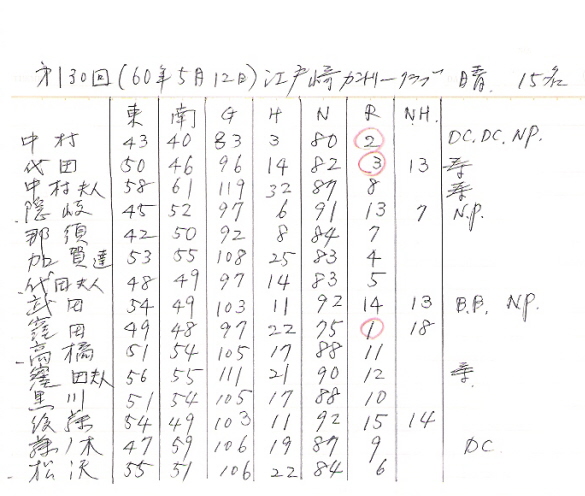 第130回(60年5月12日)江戸崎カントリークラブ 晴 15名
東 南 G H N R N.H.
中村 43 40 83 3 80 2 DC. DC. NP.
代田 50 46 96 14 82 3 13
中村夫人 58 61 119 32 87 8
隠岐 45 52 97 6 91 13 7 N.P.
那須 42 50 92 8 84 7
加賀達 53 55 108 25 83 4
代田夫人 48 49 97 14 83 5
武田 54 49 103 11 92 14 13 B.B. NP.
窪田 49 48 97 22 75 1 18
高橋 51 54 105 17 88 11
窪田夫人 56 55 111 21 90 12
黒川 51 54 105 17 88 10
後藤 54 49 103 11 92 15 14
藤ノ木 47 59 106 19 87 9 DC.
松沢 55 51 106 22 84 6